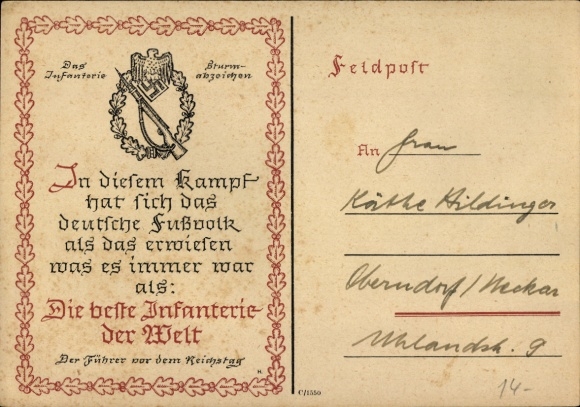 Das Sturm-
Infanterie abzeichen
In diesem Kampf
hat sich das
deutsche Fußvolk
als das erwiesen
was es immer war
als:
Die beste Infanterie
der Welt
Der Führer vor dem Reichstag
C/1550
Feldpost
An Frau
Käthe Hildinger
Oberndorf/Neckar
Uhlandstr. 9
14-